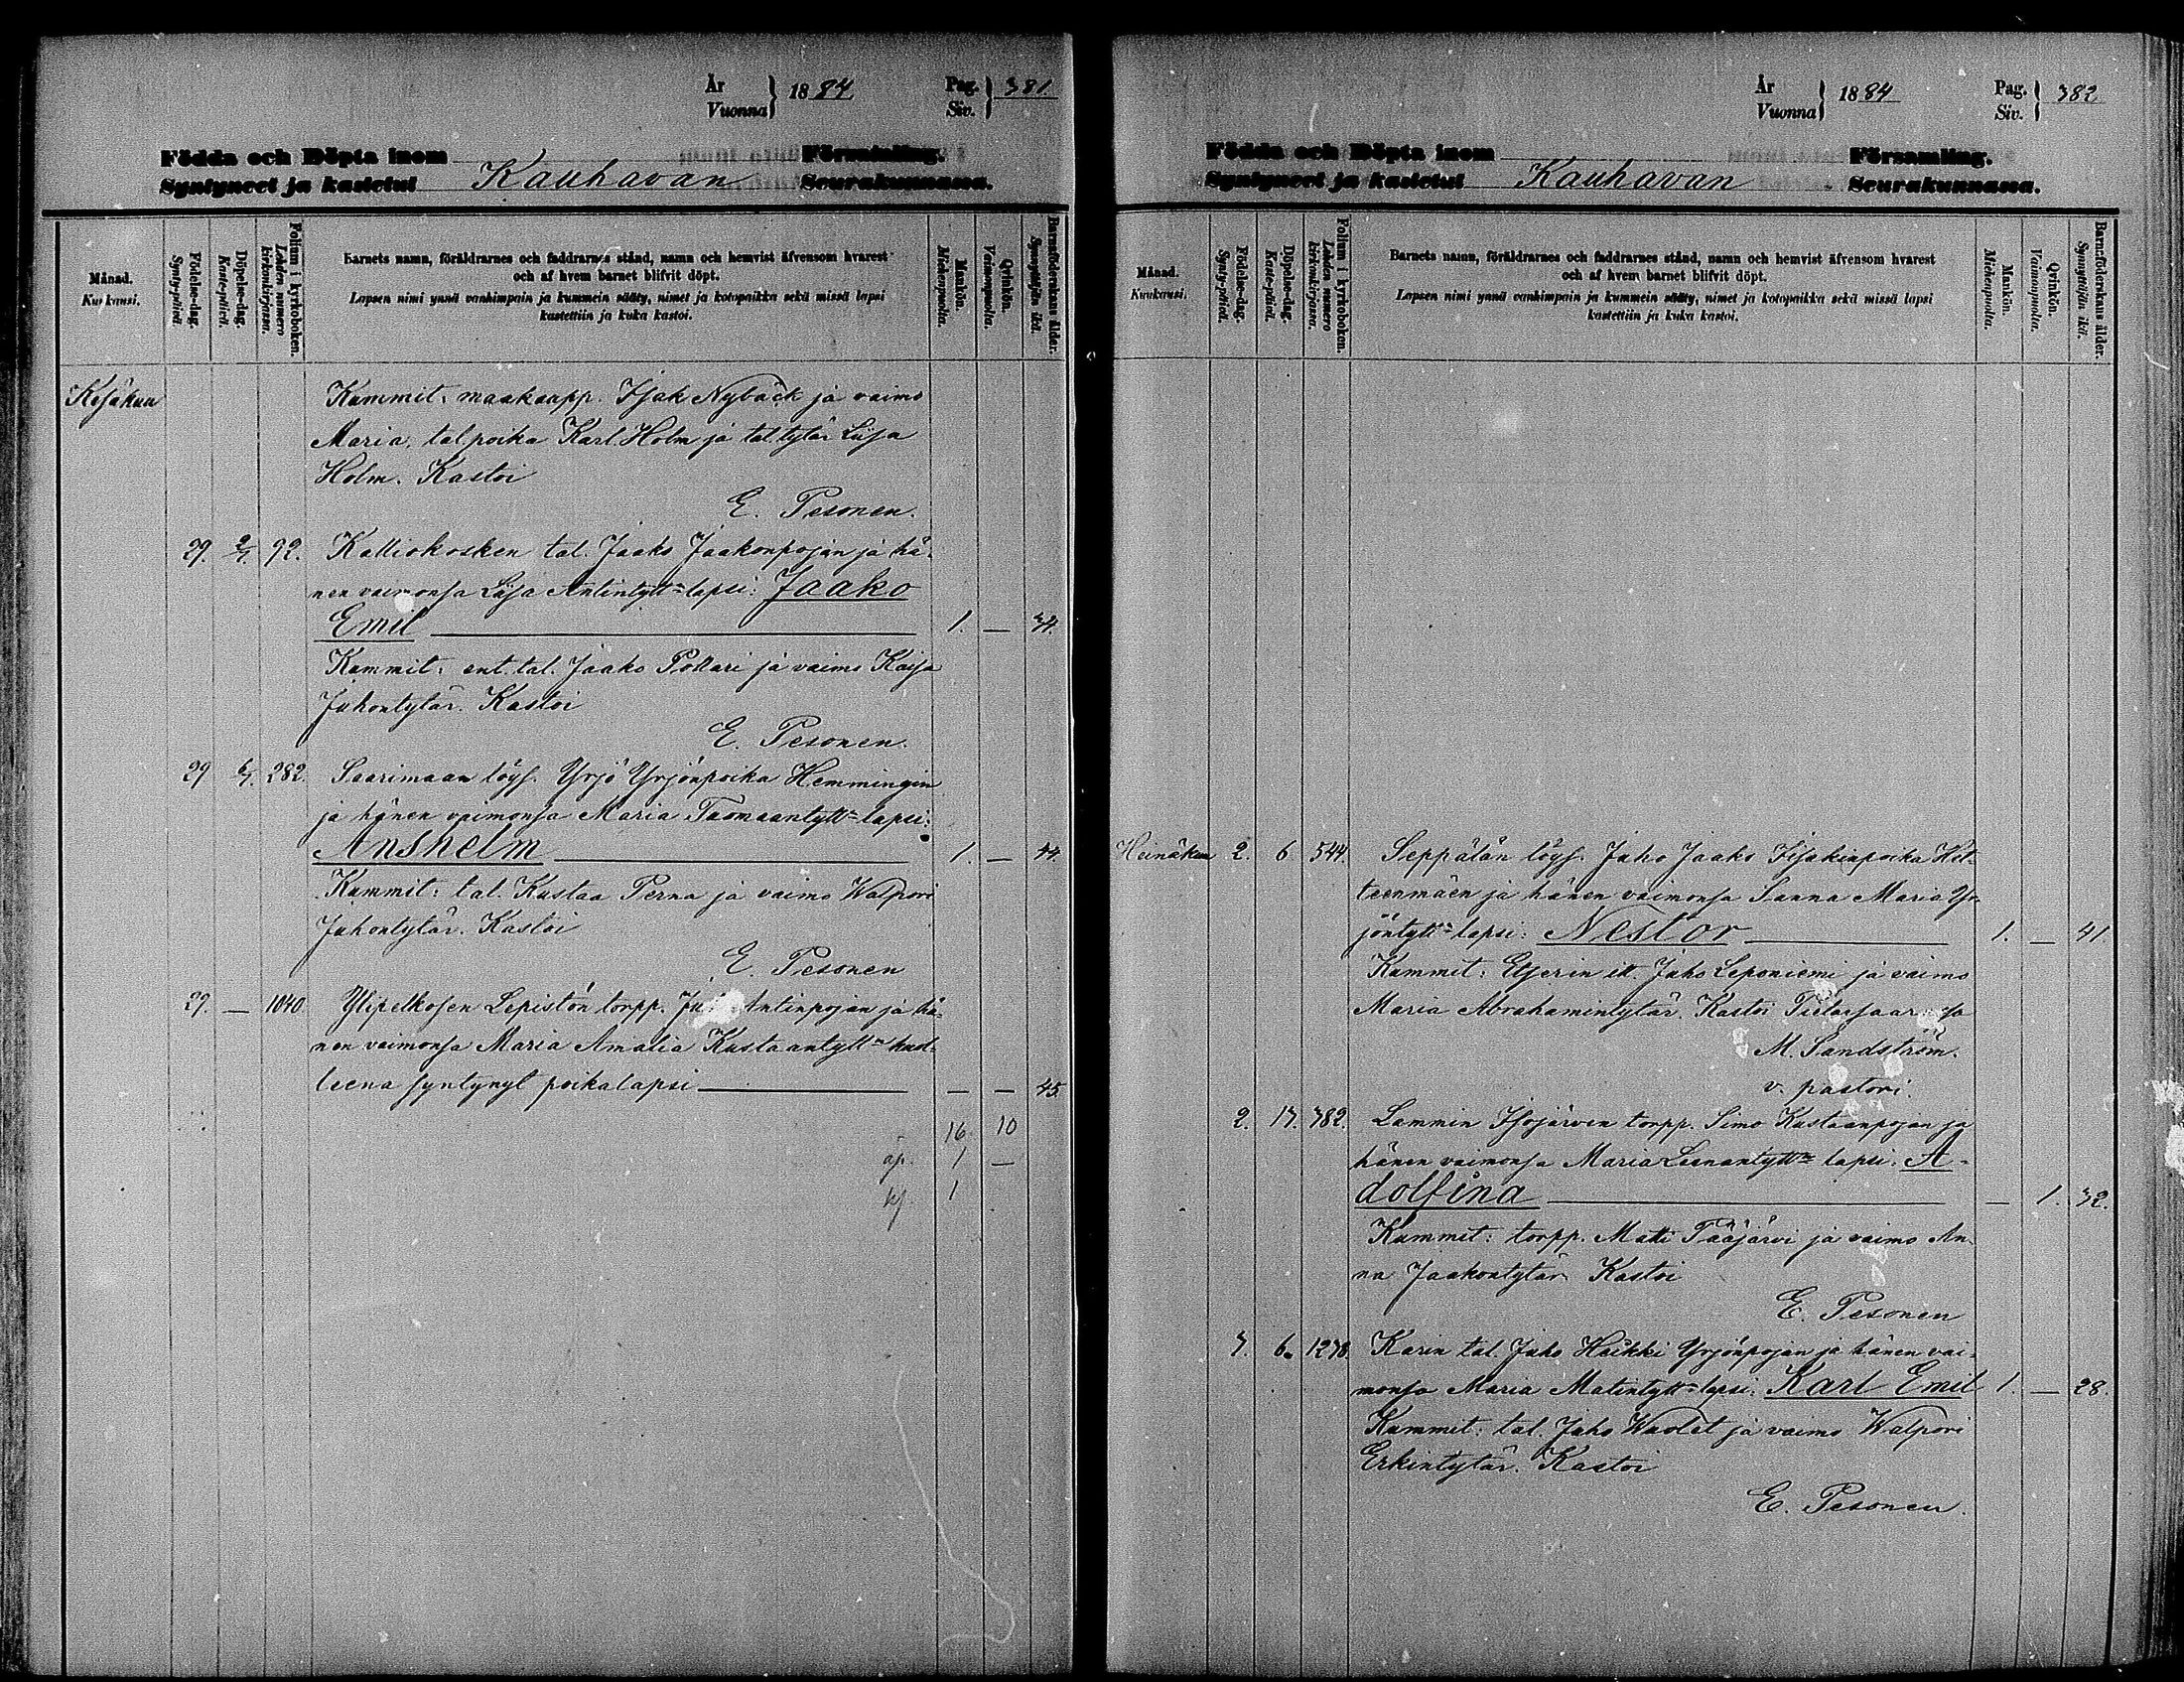 År
Vuonna } 1884 Pag.
Siv. } 381
Födda och Döpta inom Församling.
Syntyneet ja kastetut Kauhavan Seurakunnassa.
Månad.
Kuukausi.
Födelse-dag.
Synty-päivä.
Döpelse-dag.
Kaste-päivä.
Folium i kyrkoboken.
Lehden numero kirkonkirjassa.
Barnets namn, föräldrarnes och faddrarnes stånd, namn och hemvist äfvensom hvarest
och af hvem barnet blifvit döpt.
Lapsen nimi ynnä vanhimpain ja kummein sääty, nimet ja kotopaikka sekä missä lapsi
kastettiin ja kuka kastoi.
Mankön.
Miehenpuolta.
Qvinkön.
Vaimonpuolta.
Barnsföderskans ålder.
Synnyttäjän ikä.
Kesäkuu Kummit: maakaupp. Isak Nybäck ja vaimo
Maria, tal.poika Karl Holm ja tal.tytär Liisa
Holm. Kastoi
E. Pesonen.
29. 2/7. 92. Kalliokosken tal. Jaako Jaakonpojan ja hä-
nen vaimonsa Liisa Antintytt:n lapsi: Jaako
Emil 1. — 34.
Kummit: ent. tal. Jaako Pollari ja vaimo Kaisa
Juhontytär. Kastoi
E. Pesonen.
29 6/7. 282. Saarimaan löys. Yrjö Yrjönpoika Hemmingin
ja hänen vaimonsa Maria Tuomaantytt:n lapsi:
Anshelm 1. — 44.
Kummit: tal. Kustaa Perna ja vaimo Walpori
Juhontytär. Kastoi
E. Pesonen
29. — 1040 Ylipelkosen Lepistön torpp. Antinpojan ja hä-
nen vaimonsa Maria Amalia Kustaantytt:n kuol-
leena syntynyt poikalapsi — — 45.
16. 10
äp. 1 —
kf. 1
År
Vuonna } 1884 Pag.
Siv. } 382
Födda och Döpta inom Församling.
Syntyneet ja kastetut Kauhavan Seurakunnassa.
Månad.
Kuukausi.
Födelse-dag.
Synty-päivä.
Döpelse-dag.
Kaste-päivä.
Folium i kyrkoboken.
Lehden numero kirkonkirjassa.
Barnets namn, föräldrarnes och faddrarnes stånd, namn och hemvist äfvensom hvarest
och af hvem barnet blifvit döpt.
Lapsen nimi ynnä vanhimpain ja kummein sääty, nimet ja kotopaikka sekä missä lapsi
kastettiin ja kuka kastoi.
Mankön.
Miehenpuolta.
Qvinkön.
Vaimonpuolta.
Barnsföderskans ålder.
Synnyttäjän ikä.
Heinäkuu 2. 6 544. Seppälän löys. Juho Jaako Iisakinpoika Het-
teenmäen ja hänen vaimonsa Sanna Maria Yr-
jöntytt:n lapsi: Nestor 1. — 41.
Kummit: Etserin it. Juho Leponiemi ja vaimo
Maria Abrahamintytär. Kastoi
M. Sandström.
v. pastori.
2. 17. 782. Lammin Isojärven torpp. Simo Kustaanpojan ja
hänen vaimonsa Maria Leenantytt:n lapsi: A-
dolfina — 1. 32.
Kummit: torpp. Matti Pääjärvi ja vaimo An-
na Jaakontytär Kastoi
E. Pesonen
3. 6. 1278. Karin tal. Juho Heikki Yrjönpojan ja hänen vai-
monsa Maria Matintytt:n lapsi: Karl Emil 1. — 28.
Kummit: tal. Juho Wuolet ja vaimo Walpori
Erkintytär. Kastoi
E. Pesonen.